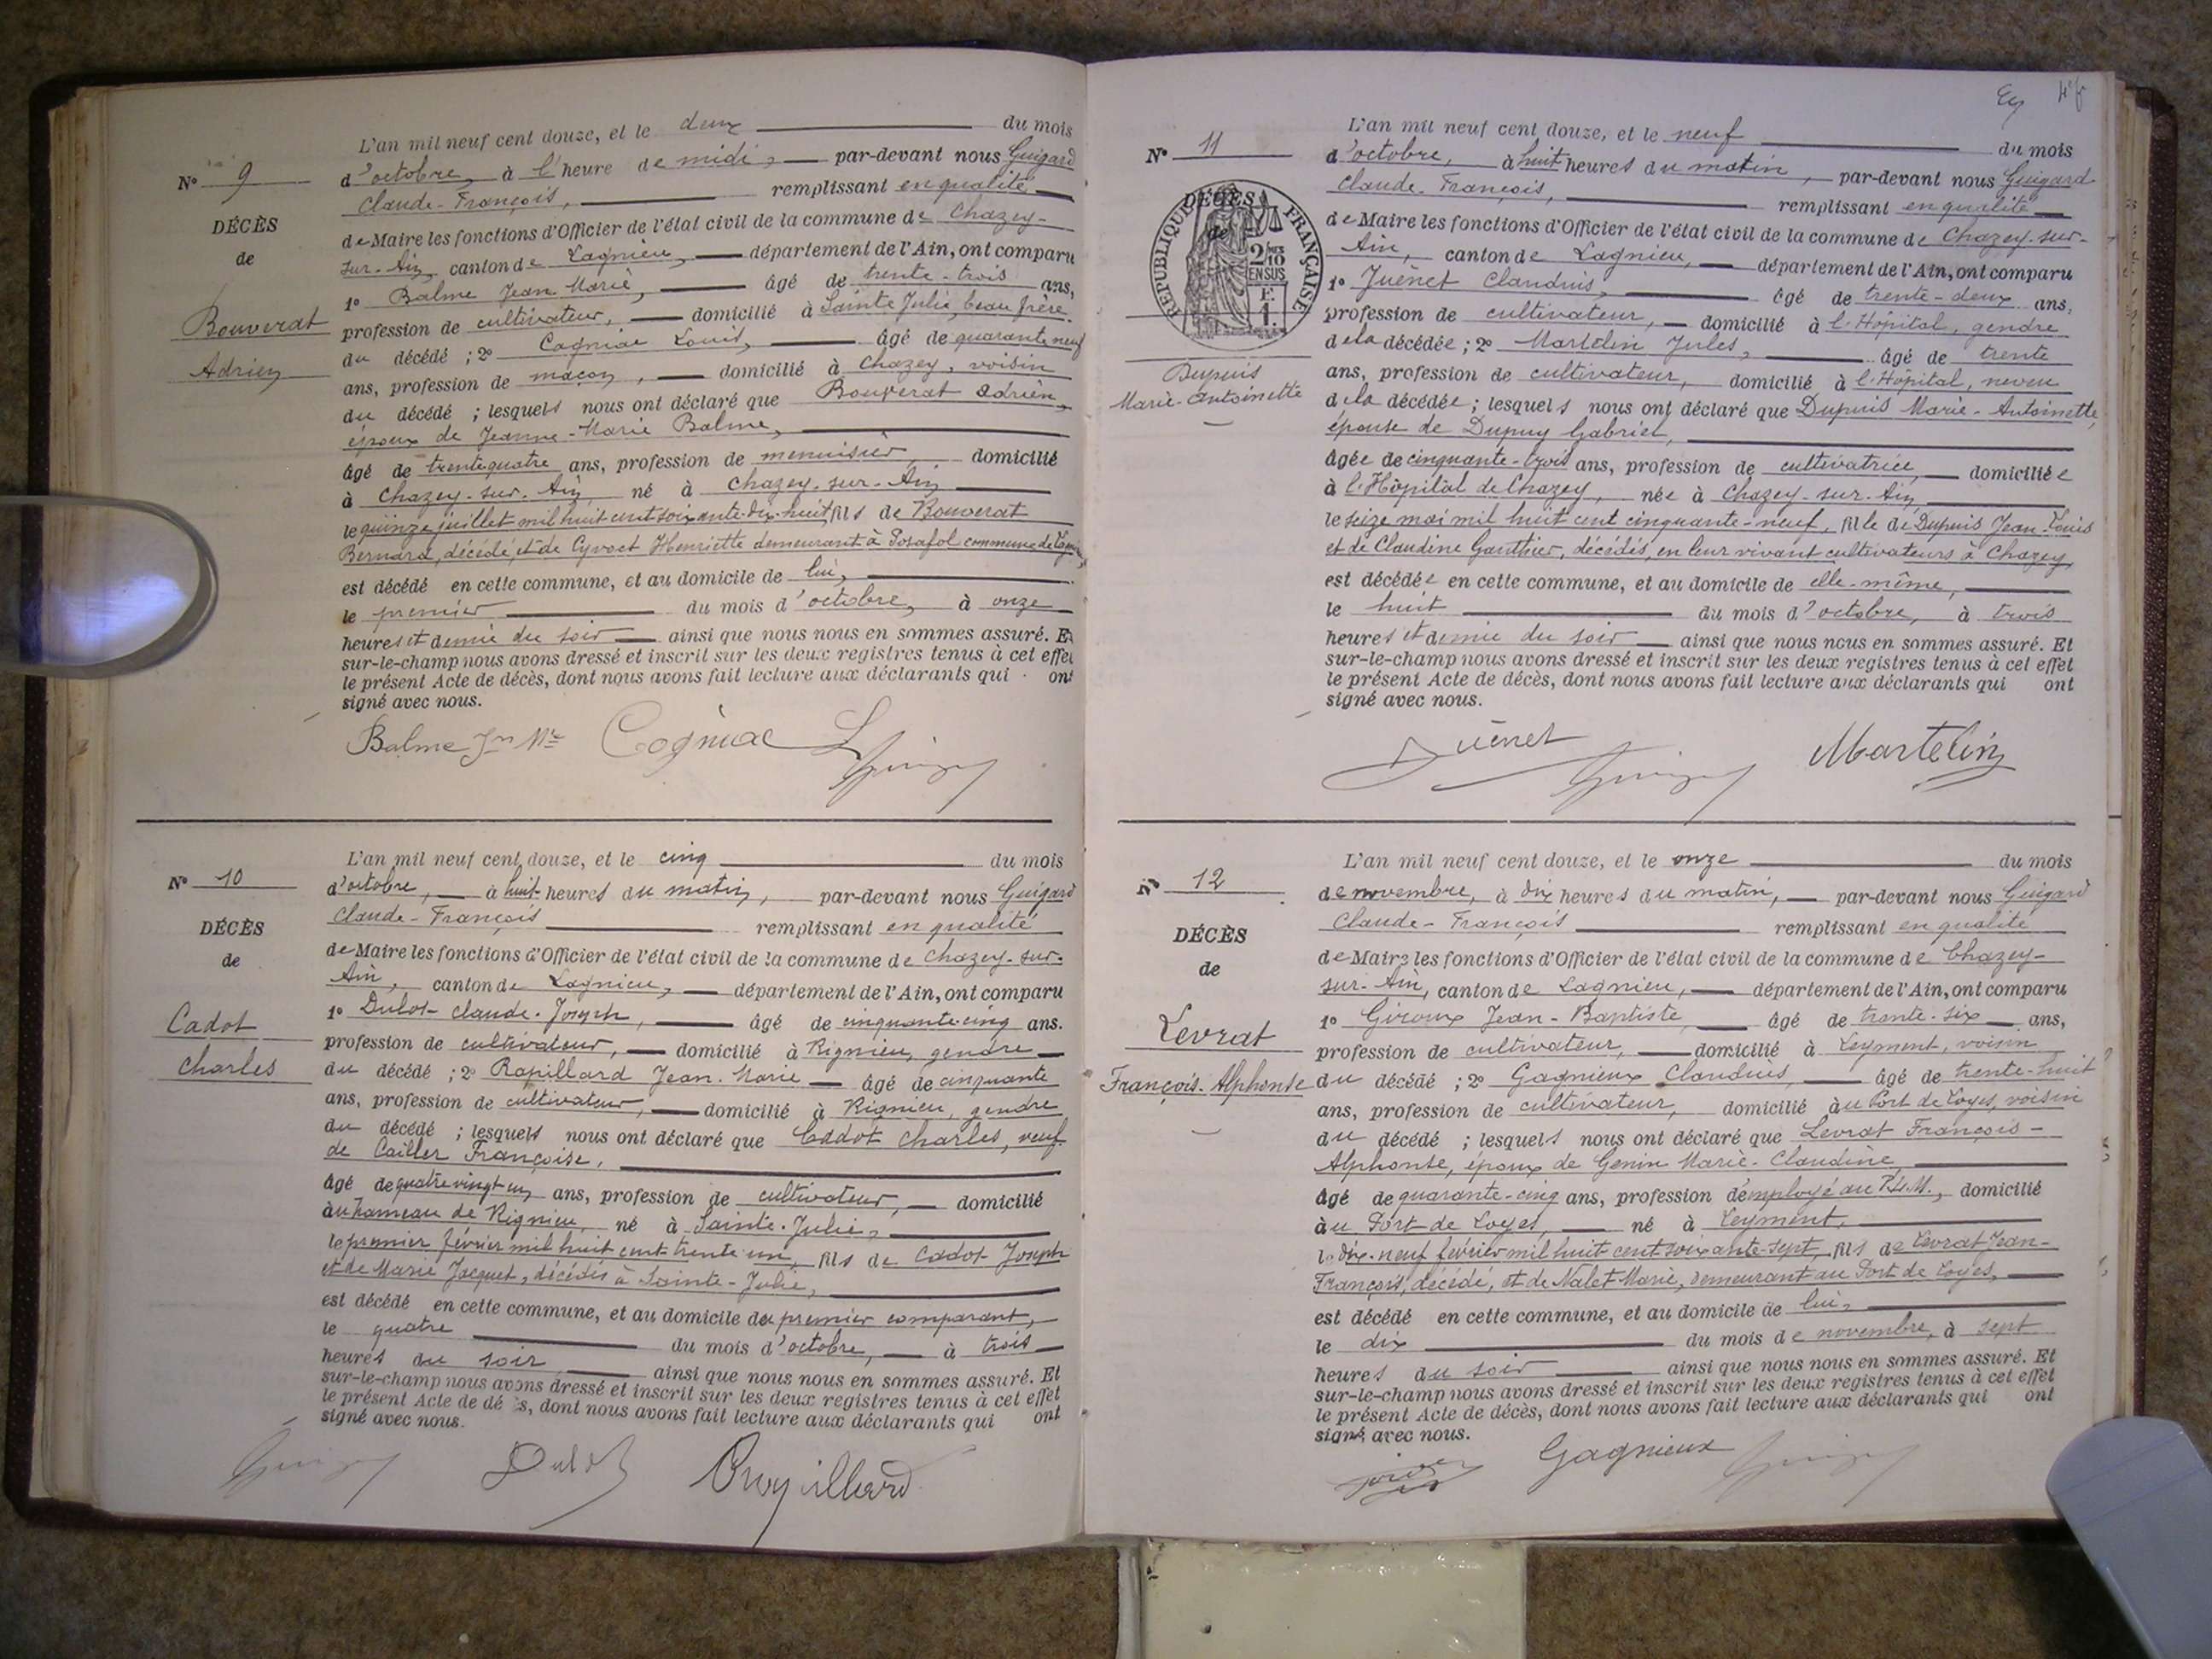 N° 9
DÉCÈS
de
Bouverat
Adrien
L'an mil neuf cent douze, et le deux du mois
d'octobre, à l'heure de midi, par-devant nous Guigard
Claude-François, remplissant en qualité
de Maire les fonctions d'Officier de l'état civil de la commune de Chazey-
sur-Ain, canton de Lagnieu, département de l'Ain, ont comparu
1° Balme Jean Marie, âgé de trente-trois ans,
profession de cultivateur, domicilié à Sainte Julie, beau frère
du décédé ; 2° Cogniac Louis, âgé de quarante neuf
ans, profession de maçon, domicilié à Chazey, voisin
du décédé ; lesquels nous ont déclaré que Bouverat Adrien,
époux de Jeanne-Marie Balme,
âgé de trente quatre ans, profession de menuisier domicilié
à Chazey-sur-Ain né à Chazey-sur-Ain
le quinze juillet mil huit cent soixante-dix-huit, fils de Bouverat
Bernard, décédé, et de Cyvoct Henriette demeurant à Posafol commune de
est décédé en cette commune, et au domicile de lui,
le premier du mois d'octobre, à onze
heures et demie du soir ainsi que nous nous en sommes assuré. Et
sur-le-champ nous avons dressé et inscrit sur les deux registres tenus à cet effet
le présent Acte de décès, dont nous avons fait lecture aux déclarants qui ont
signé avec nous.
Balme Jn Mie Cogniac L
N° 10
DÉCÈS
de
Cadot
Charles
L'an mil neuf cent douze, et le cinq du mois
d'octobre, à huit heures du matin, par-devant nous Guigard
Claude-François remplissant en qualité
de Maire les fonctions d'Officier de l'état civil de la commune de Chazey-sur-
Ain, canton de Lagnieu, département de l'Ain, ont comparu
1° Dulot Claude-Joseph, âgé de cinquante-cinq ans.
profession de cultivateur, domicilié à Rignieu, gendre
du décédé ; 2° Rapillard Jean-Marie âgé de cinquante
ans, profession de cultivateur, domicilié à Rignieu, gendre
du décédé ; lesquels nous ont déclaré que Cadot Charles, veuf
de Cailler Françoise,
âgé de quatre vingt un ans, profession de cultivateur, domicilié
au hameau de Rignieu né à Sainte-Julie,
le premier février mil huit cent trente un, fils de Cadot Joseph
et de Marie Jacquet, décédés à Sainte-Julie,
est décédé en cette commune, et au domicile du premier comparant,
le quatre du mois d'octobre, à trois
heures du soir ainsi que nous nous en sommes assuré. Et
sur-le-champ nous avons dressé et inscrit sur les deux registres tenus à cet effet
le présent Acte de décès, dont nous avons fait lecture aux déclarants qui ont
signé avec nous.
Dulot
N° 11
DÉCÈS
de
RÉPUBLIQUE FRANÇAISE
2/10
EN SUS
F.
1.
Dupuis
Marie-Antoinette
L'an mil neuf cent douze, et le neuf du mois
d'octobre, à huit heures du matin, par-devant nous Guigard
Claude-François, remplissant en qualité
de Maire les fonctions d'Officier de l'état civil de la commune de Chazey-sur-
Ain, canton de Lagnieu, département de l'Ain, ont comparu
1° Juénet Claudius, âgé de trente-deux ans,
profession de cultivateur, domicilié à l'Hôpital, gendre
de la décédée ; 2° Martelin Jules, âgé de trente
ans, profession de cultivateur, domicilié à l'Hôpital, neveu
de la décédée ; lesquels nous ont déclaré que Dupuis Marie-Antoinette,
épouse de Dupuy Gabriel,
âgée de cinquante-trois ans, profession de cultivatrice, domiciliée
à l'Hôpital de Chazey, née à Chazey-sur-Ain
le seize mai mil huit cent cinquante-neuf, fille de Dupuis Jean-Louis
et de Claudine Gauthier, décédés, en leur vivant cultivateurs à Chazey,
est décédée en cette commune, et au domicile de elle-même,
le huit du mois d'octobre, à trois
heures et demie du soir ainsi que nous nous en sommes assuré. Et
sur-le-champ nous avons dressé et inscrit sur les deux registres tenus à cet effet
le présent Acte de décès, dont nous avons fait lecture aux déclarants qui ont
signé avec nous.
Juénet Martelin
N° 12
DÉCÈS
de
Levrat
François-Alphonse
L'an mil neuf cent douze, et le onze du mois
de novembre, à dix heures du matin, par-devant nous Guigard
Claude-François remplissant en qualité
de Maire les fonctions d'Officier de l'état civil de la commune de Chazey-
sur-Ain, canton de Lagnieu, département de l'Ain, ont comparu
1° Giroux Jean-Baptiste âgé de trente-six ans,
profession de cultivateur, domicilié à Leyment, voisin
du décédé ; 2° Gagnieux Claudius, âgé de trente-huit
ans, profession de cultivateur, domicilié au Port de Loyes, voisin
du décédé ; lesquels nous ont déclaré que Levrat François-
Alphonse, époux de Genin Marie-Claudine,
âgé de quarante-cinq ans, profession d'employé au P.L.M., domicilié
au Port de Loyes, né à Leyment,
le dix-neuf février mil huit cent soixante-sept, fils de Levrat Jean-
François, décédé, et de Nalet Marie, demeurant au Port de Loyes,
est décédé en cette commune, et au domicile de lui,
le dix du mois de novembre, à sept
heures du soir ainsi que nous nous en sommes assuré. Et
sur-le-champ nous avons dressé et inscrit sur les deux registres tenus à cet effet
le présent Acte de décès, dont nous avons fait lecture aux déclarants qui ont
signé avec nous.
Gagnieux